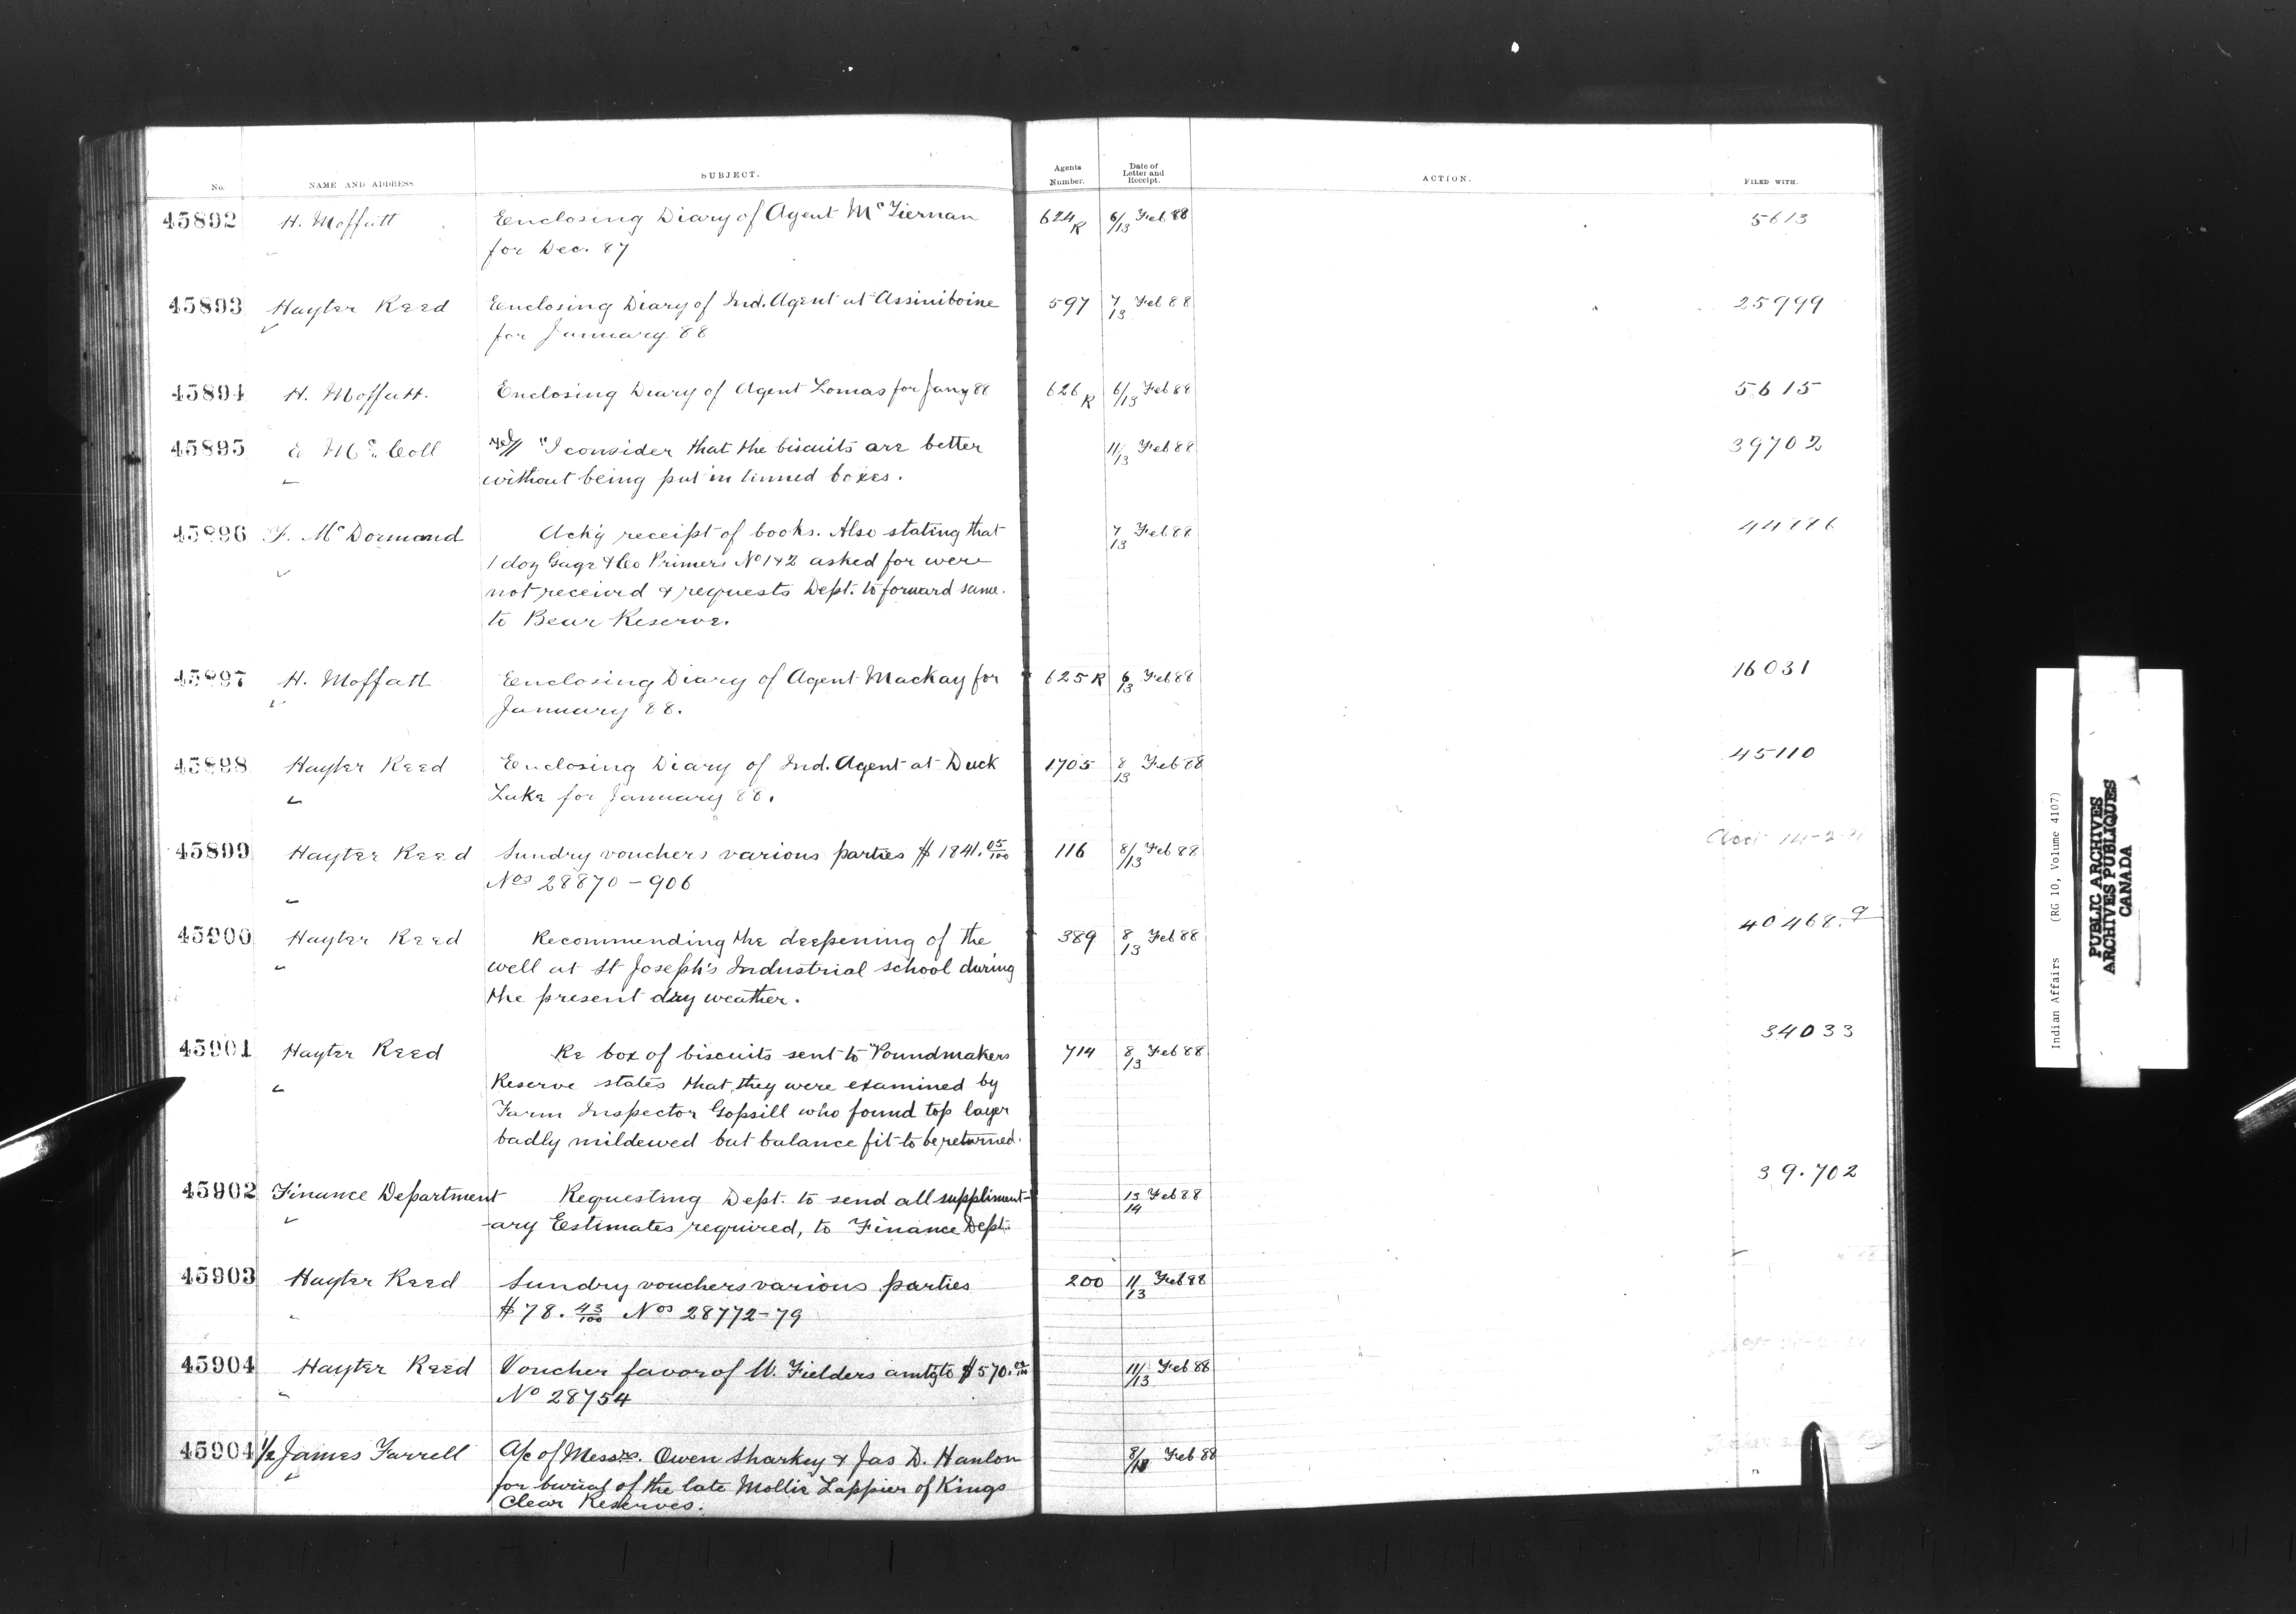 No. NAME AND ADDRESS SUBJECT. Agents Number. Date of Letter and Receipt. ACTION. FILED WITH.
45892 H. Moffatt Enclosing Diary of Agent Mc Tiernan 624 R 6/13 Feb 88 5613
for Dec. 87
45893 Hayter Reed Enclosing Diary of Ind. Agent at Assiniboine 597 7/13 Feb 88 25999
for January 88
45894 H. Moffatt. Enclosing Diary of Agent Lomas for Jany 88 626 R 6/13 Feb 88 5615
45895 E Mc. Coll "I consider that the biscuits are better 11/13 Feb 88 39702
without being put in tinned boxes.
45896 F. Mc Dormand Ackg receipt of books. Also stating that 7/13 Feb 88
1 doz Gage & Co Primers No 1 & 2 asked for were
not received & requests Dept. to forward same.
to Bear Reserve.
45897 H. Moffatt Enclosing Diary of Agent Mackay for 625 R 6/13 Feb 88 16031
January 88.
45898 Hayter Reed Enclosing Diary of Ind. Agent at Duck 1705 8/13 Feb 88 45110
Lake for January 88.
45899 Hayter Reed Sundry vouchers various parties $1841. 05/100 116 8/13 Feb 88
Nos 28870-906
45900 Hayter Reed Recommending the deepening of the 389 8/13 Feb 88 40468.
well at St Joseph's Industrial school during
the present dry weather.
45901 Hayter Reed Re box of biscuits sent to Poundmakers 714 8/13 Feb 88 34033
Reserve states that they were examined by
Farm Inspector Gopsill who found top layer
badly mildewed but balance fit to be returned.
45902 Finance Department Requesting Dept. to send all suppliment- 13/14 Feb 88 39.702
ary Estimates required, to Finance Dept.
45903 Hayter Reed Sundry vouchers various parties 200 11/13 Feb 88
$78. 43/100 Nos 28772-79
45904 Hayter Reed Voucher favor of W. Fielders amtg to $570. 11/13 Feb 88
No 28754
45904 1/2 James Farrell A/c of Messrs. Owen Sharkey & Jas D. Hanlon Feb 88
for burial of the late Mollie Lappier of Kings
Clear Reserves.
Indian Affairs (RG 10, Volume 4107)
PUBLIC ARCHIVES
ARCHIVES PUBLIQUES
CANADA